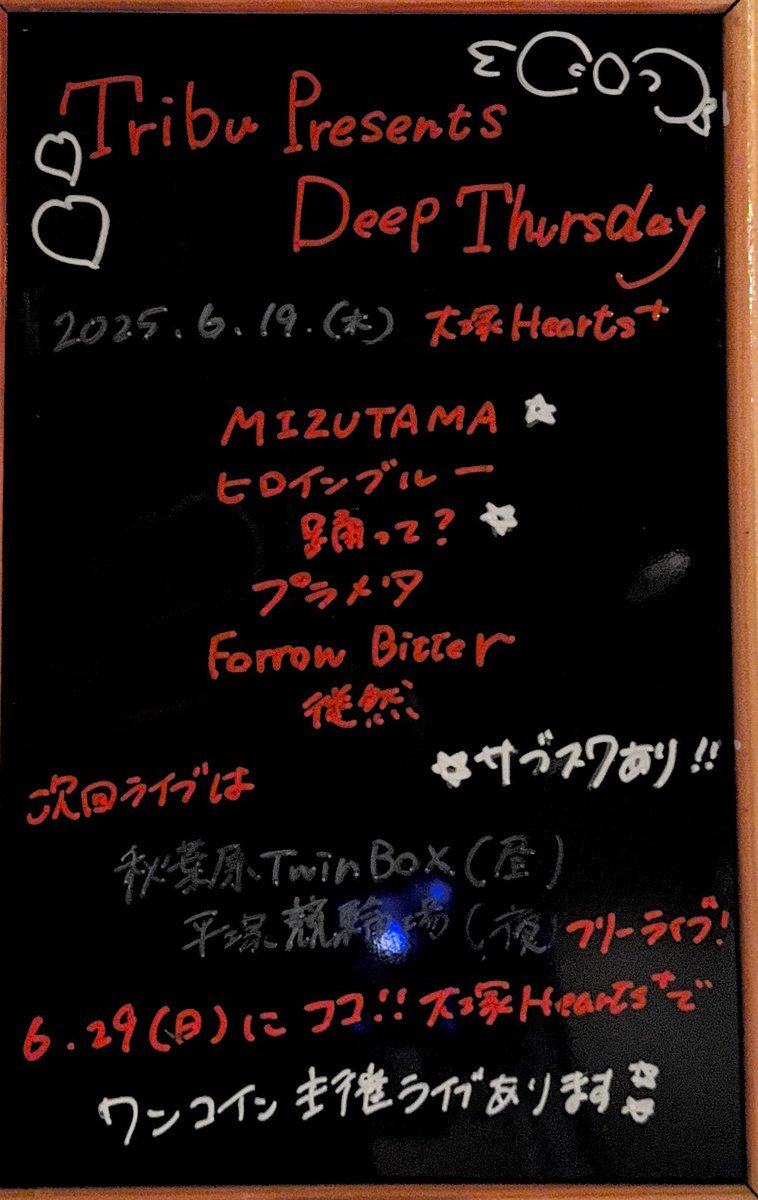 Tribu Presents
Deep Thursday
2025.6.19.(木) 大塚Hearts+
MIZUTAMA ☆
ヒロインブルー
踊って? ☆
プラメタ
Forrow Bitter
徒然
☆サブスクあり!!
次回ライブは
秋葉原TwinBox(昼)
平塚競輪場(夜)フリーライブ!
6.29(日)にココ!!大塚Hearts+で
ワンコイン主催ライブあります☆☆